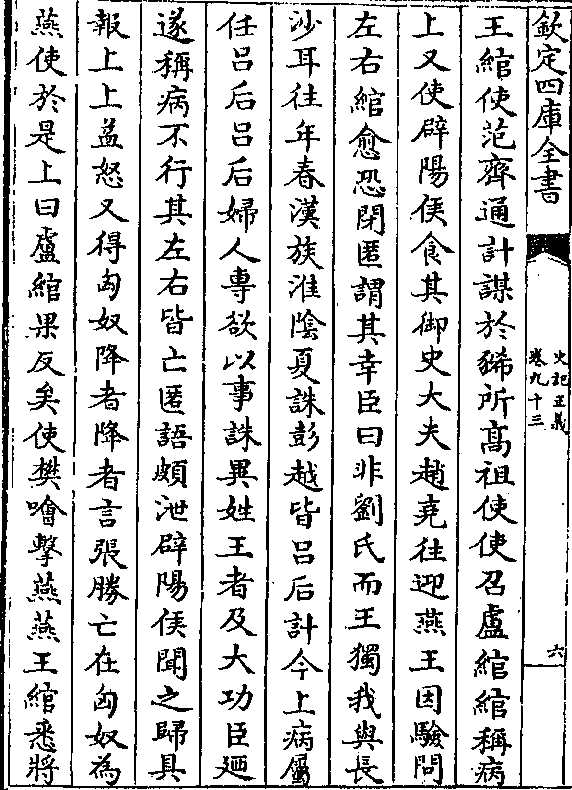 欽定四庫全書
史記正義
卷九十三
六
王綰使范齊通計謀於豨所高祖使使召盧綰綰稱病
上又使辟陽侯食其御史大夫趙堯往迎燕王因驗問
左右綰愈恐閉匿謂其幸臣曰非劉氏而王獨我與長
沙耳往年春漢族淮陰夏誅彭越皆吕后計今上病屬
任吕后吕后婦人專欲以事誅異姓王者及大功臣廼
遂稱病不行其左右皆亡匿語頗泄辟陽侯聞之歸具
報上上益怒又得匈奴降者降者言張勝亡在匈奴為
燕使於是上曰盧綰果反矣使樊噲擊燕燕王綰悉將